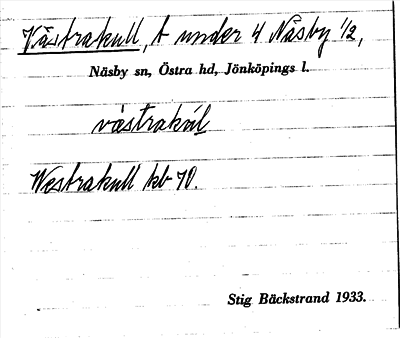 Västrakull, t under 4 Näsby 1/2,
Näsby sn, Östra hd, Jönköpings l.
västrakúl
Westrakull kb 70.
Stig Bäckstrand 1933.